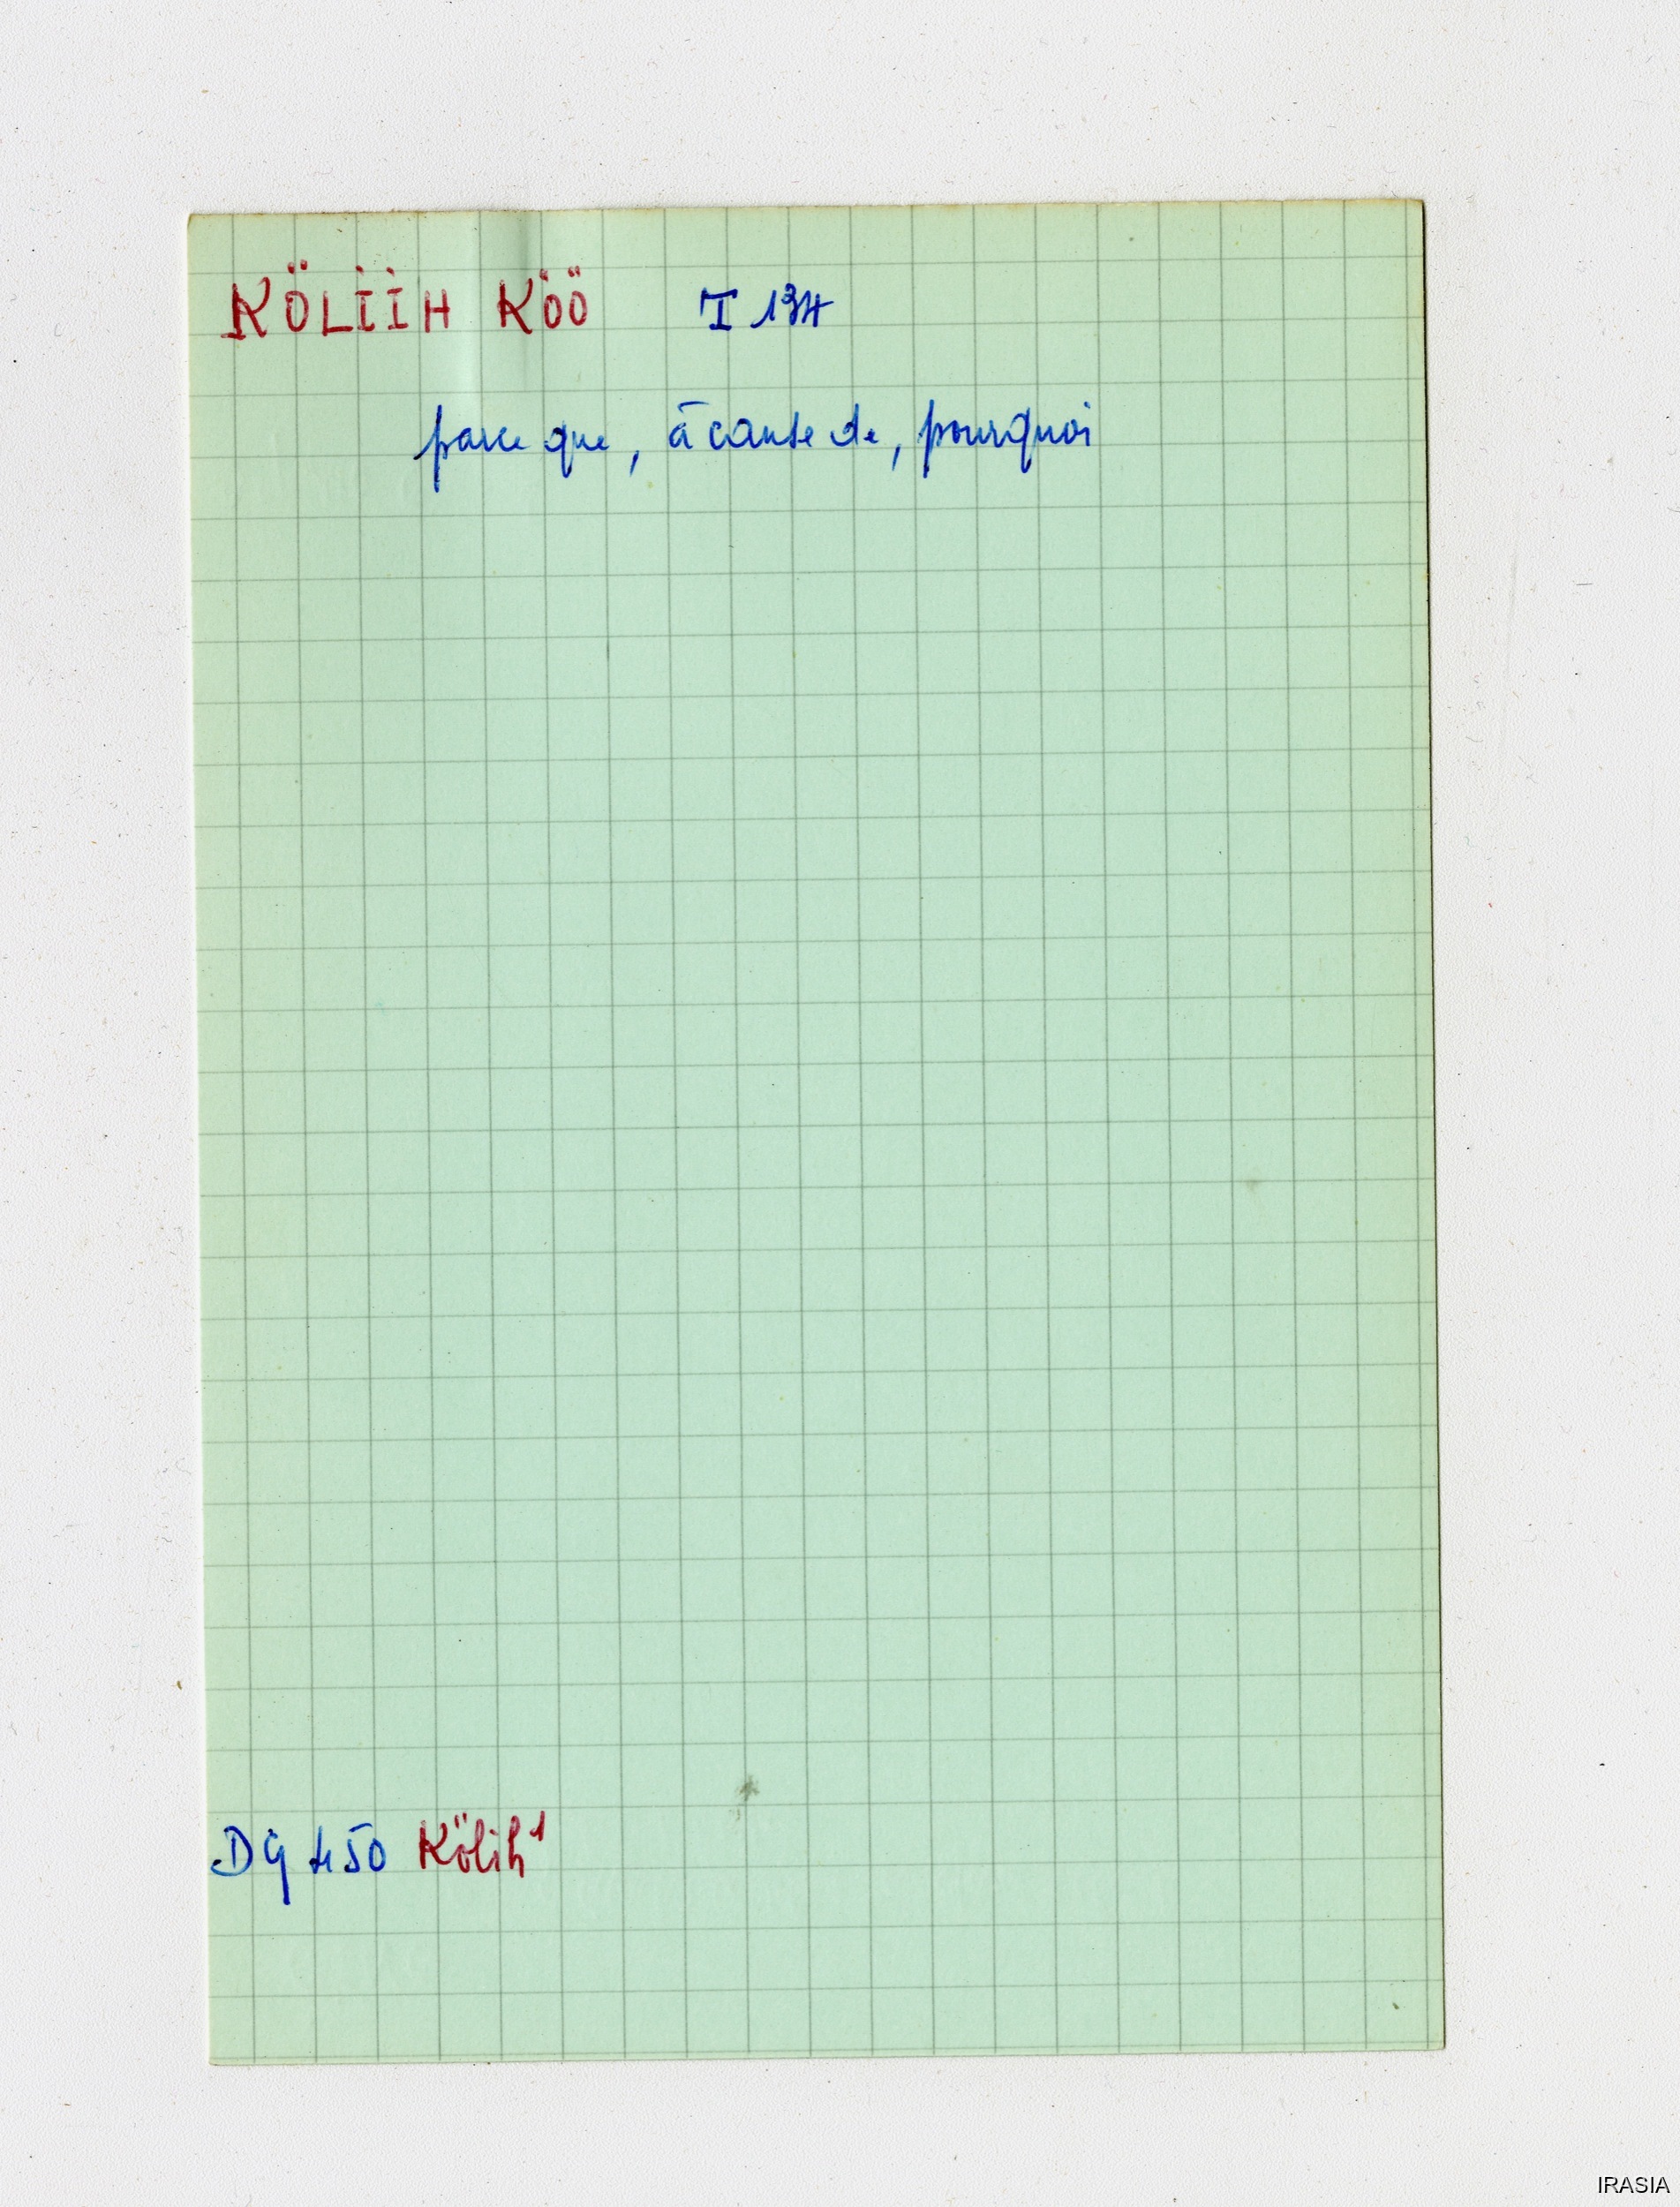 KÖLİİH KÖÖ I 134
parce que, à cause de, pourquoi
DG 450 Kölih¹
IRASIA